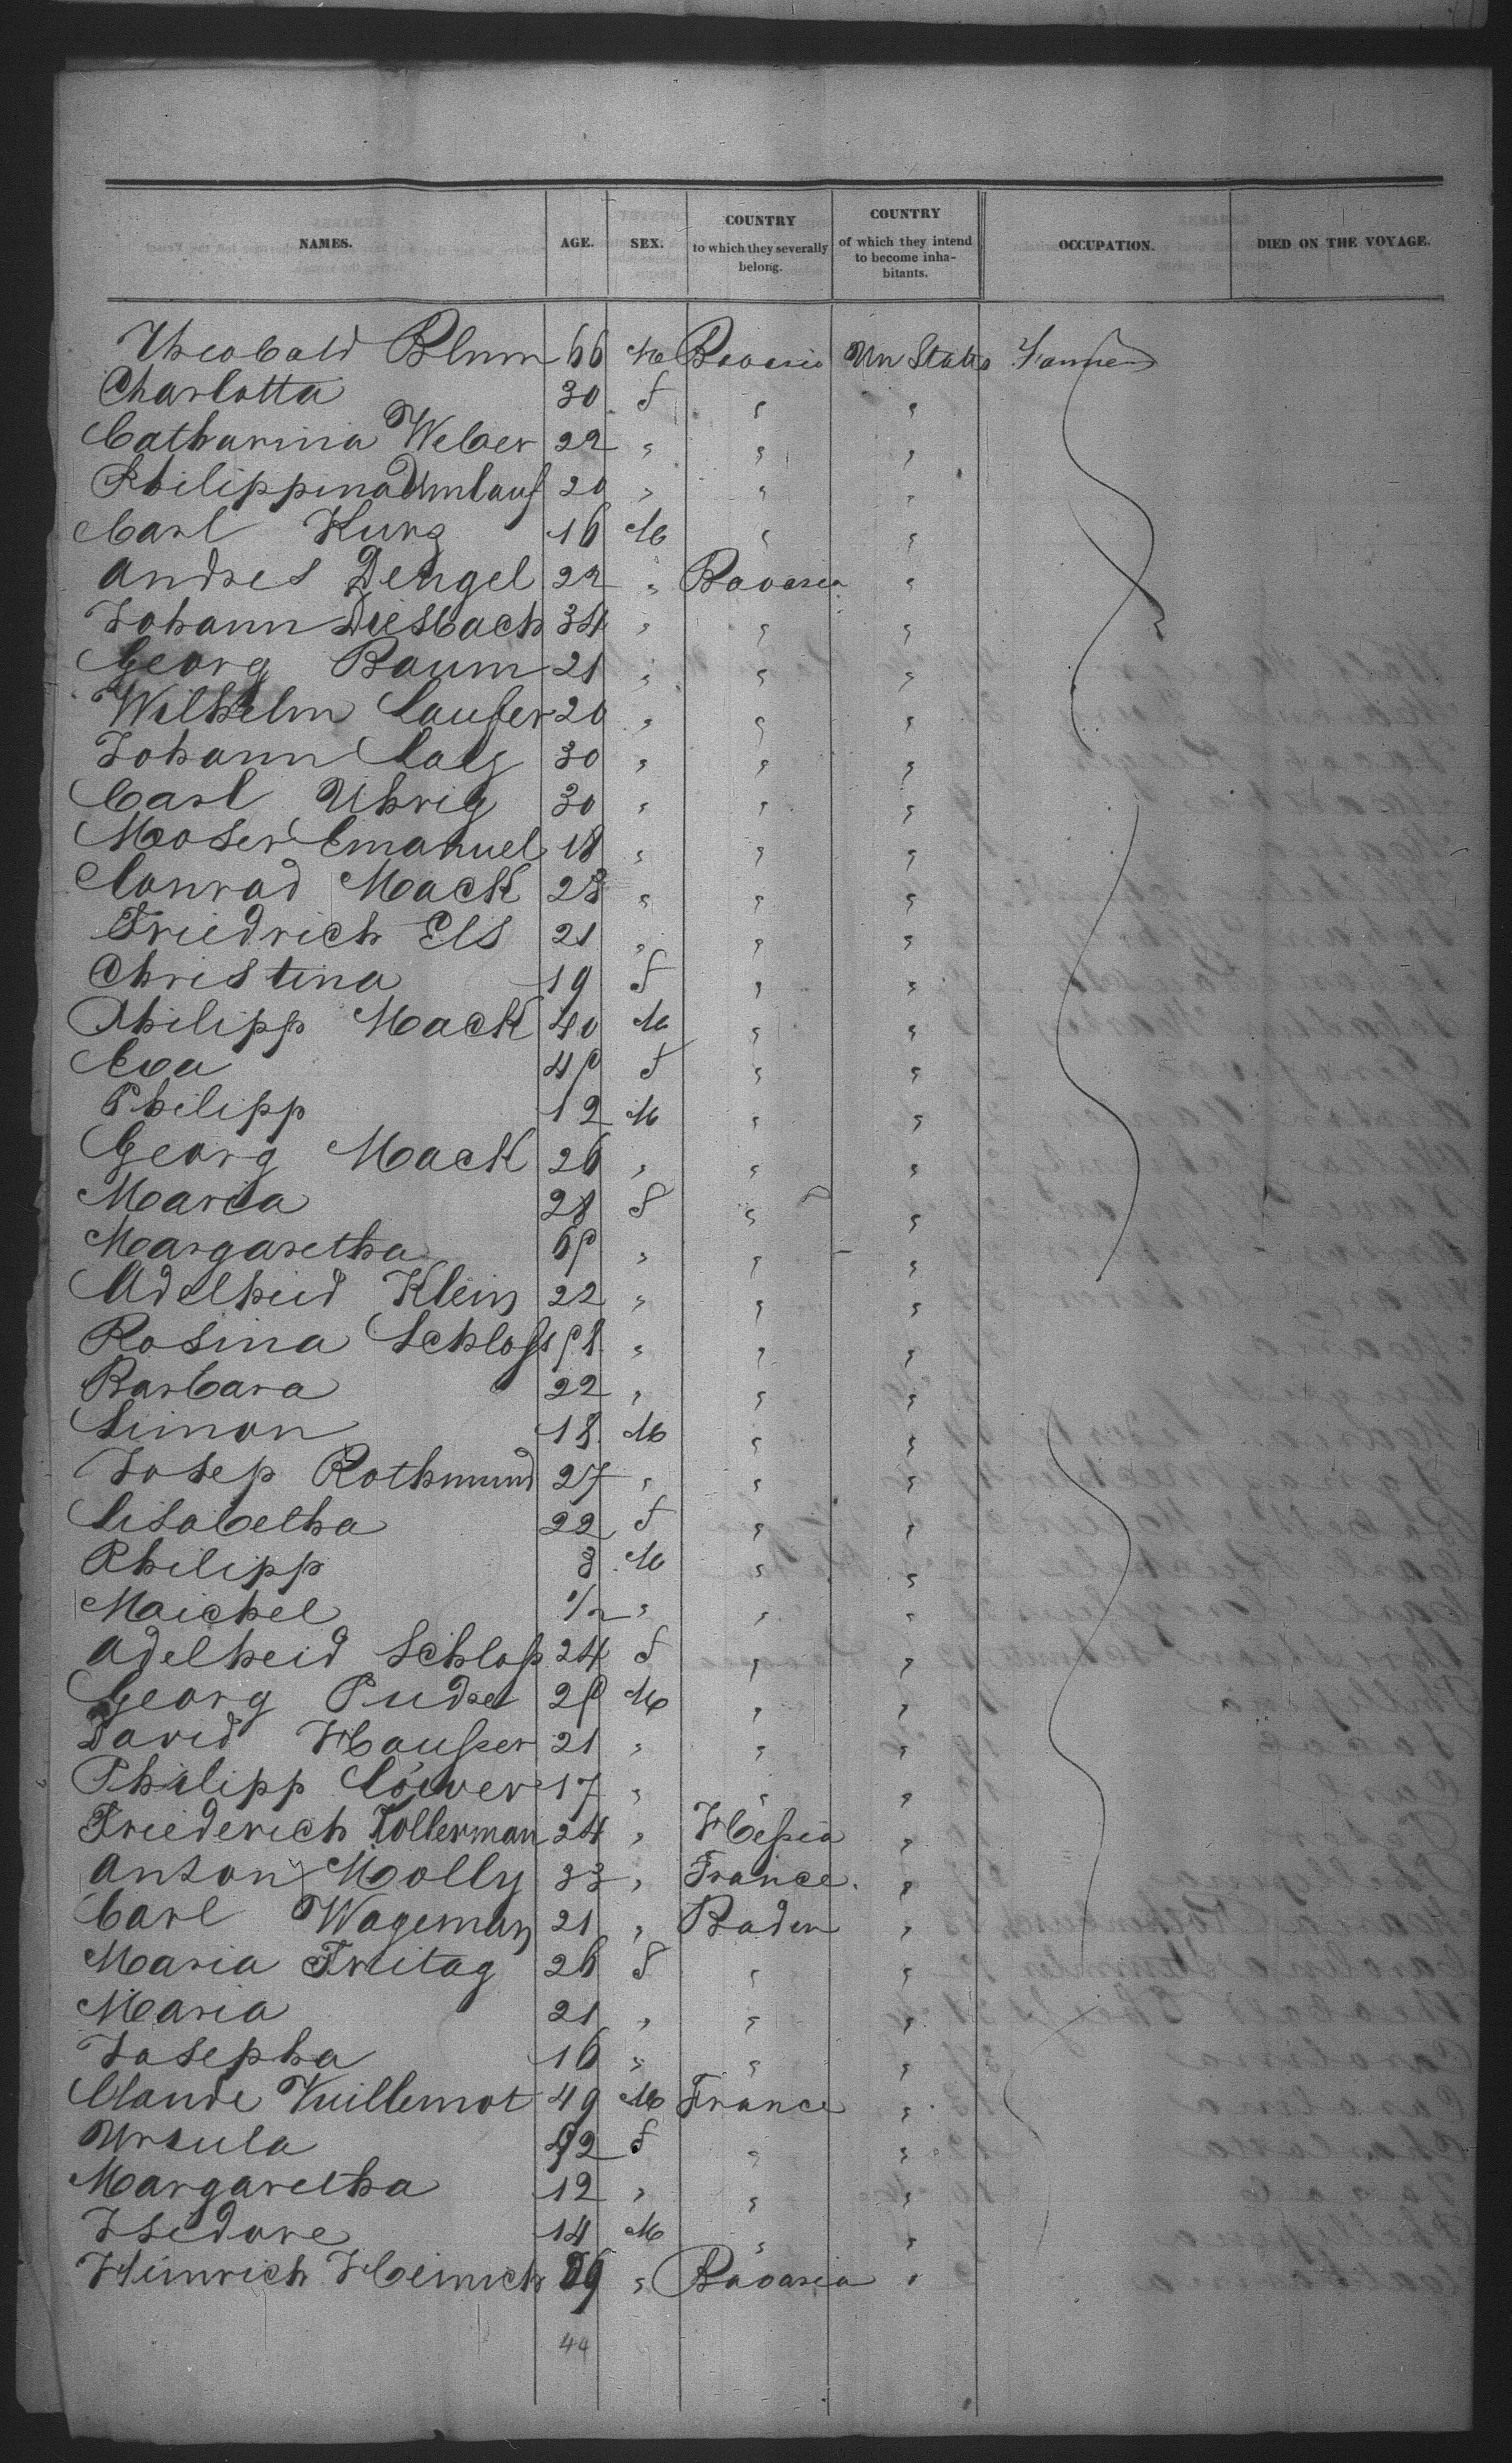 NAMES. AGE. SEX. COUNTRY to which they severally belong. COUNTRY of which they intend to become inhabitants. OCCUPATION. DIED ON THE VOYAGE.
Theobald Blum 66 M Bavaria Un States Farmer
Charlotta 30 f " "
Catharina Weber 22 " " "
Philippina Umlauf 20 " " "
Carl Kurz 16 M " "
Andres Dengel 22 " Bavaria "
Johann Diesbach 34 " " "
Georg Baum 21 " " "
Wilhelm Laufer 20 " " "
Johann 30 " " "
Carl Uhrig 30 " " "
Moser Emanuel 18 " " "
Conrad Mack 28 " " "
Friedrich Els 21 " " "
Christina 19 f " "
Philipp Mack 40 M " "
Eva 45 f " "
Philipp 12 M " "
Georg Mack 26 " " "
Maria 28 f " "
Margaretha 65 " " "
Adelheid Klein 22 " " "
Rosina Schloß 58 " " "
Barbara 22 " " "
Simon 18 M " "
Josep Rothmund 27 " " "
Lisabetha 22 f " "
Philipp 3 M " "
Maichel 1/2 " " "
Adelheid Schloß 24 f " "
Georg 25 M " "
David Haußer 21 " " "
Philipp Löwer 17 " " "
Friederich Kollerman 24 " Heßia "
Anton Molly 33 " France "
Carl Wageman 21 " Baden "
Maria Freitag 26 f " "
Maria 21 " " "
Josepha 16 " " "
Claude Vuillemot 49 M France "
Ursula 42 f " "
Margaretha 12 " " "
Isidore 14 M " "
Heinrich Heinrich 59 " Bavaria "
44